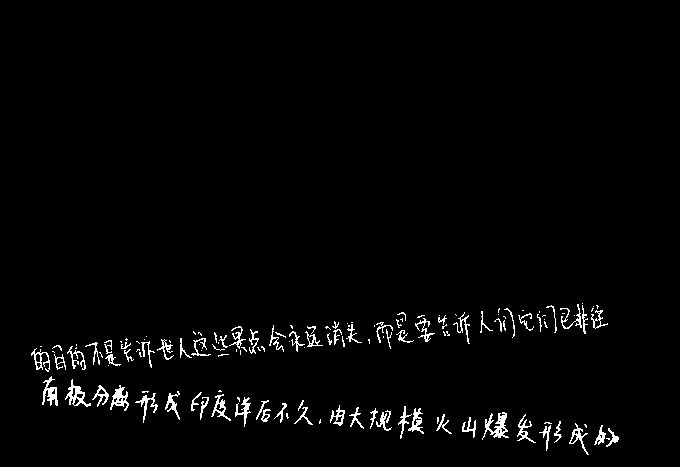 的目的不是告诉世人这些景点会永远消失,而是要告诉人们它们已非往
南极分离形成印度洋后不久,由大规模火山爆发形成的